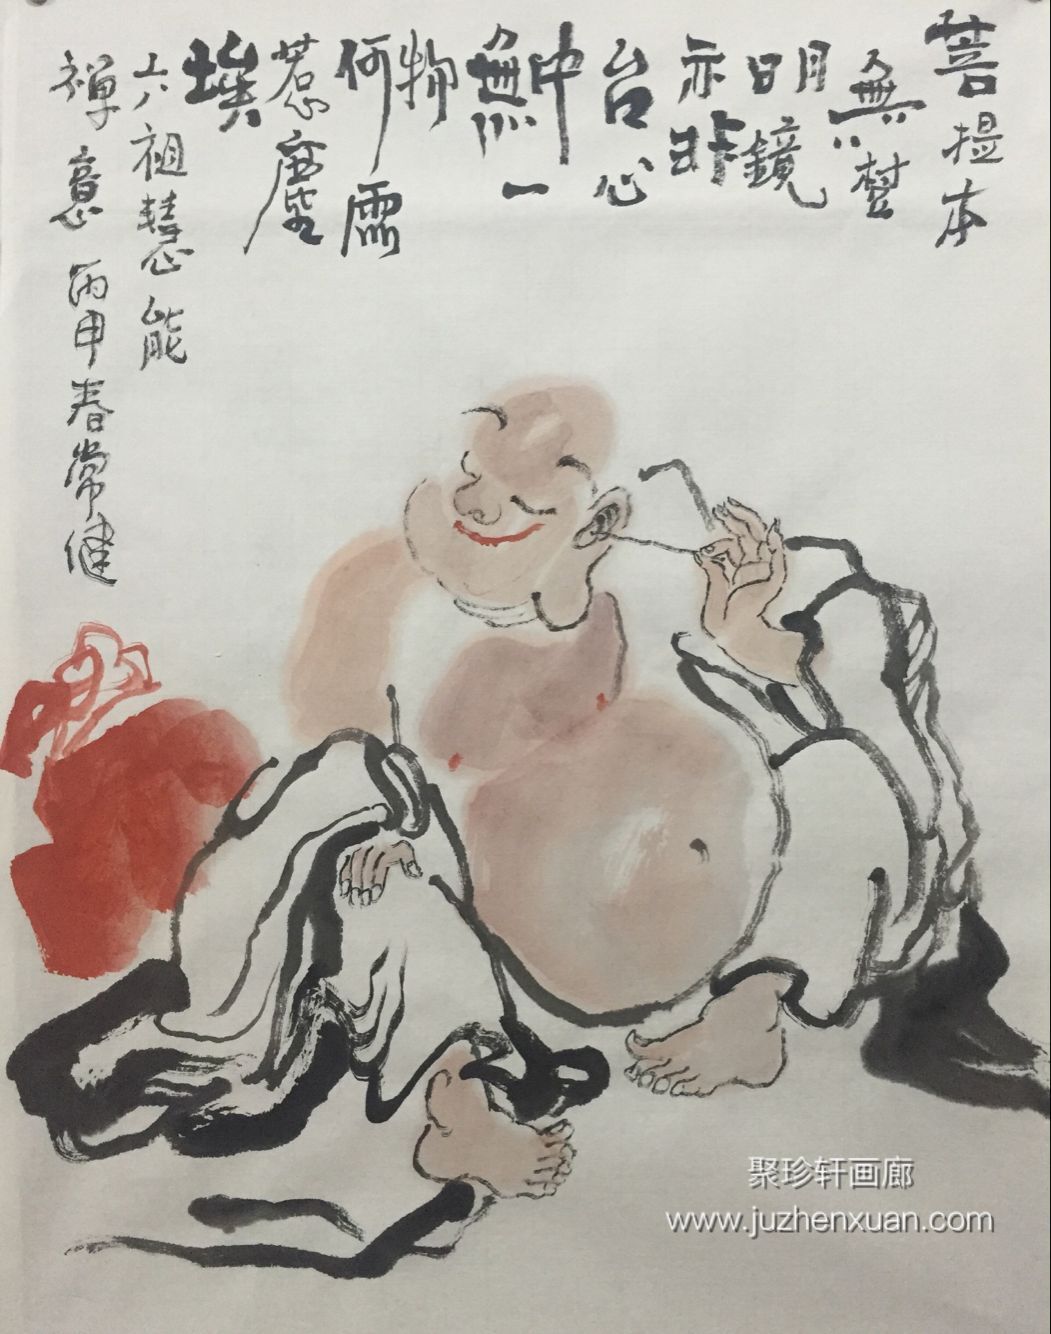 菩提本
無樹
明鏡
亦非
台心
中
無一
物
何需
惹塵
埃
六祖慧能
禅意 丙申春常健
聚珍轩画廊
www.juzhenxuan.com